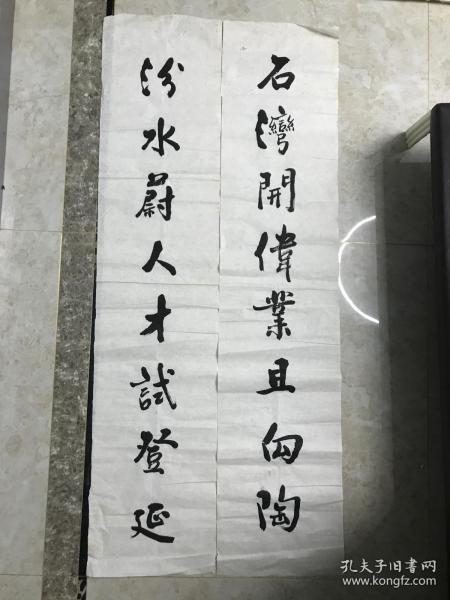 石灣開偉業且向陶
汾水蔚人才試登延
孔夫子旧书网
www.kongfz.com